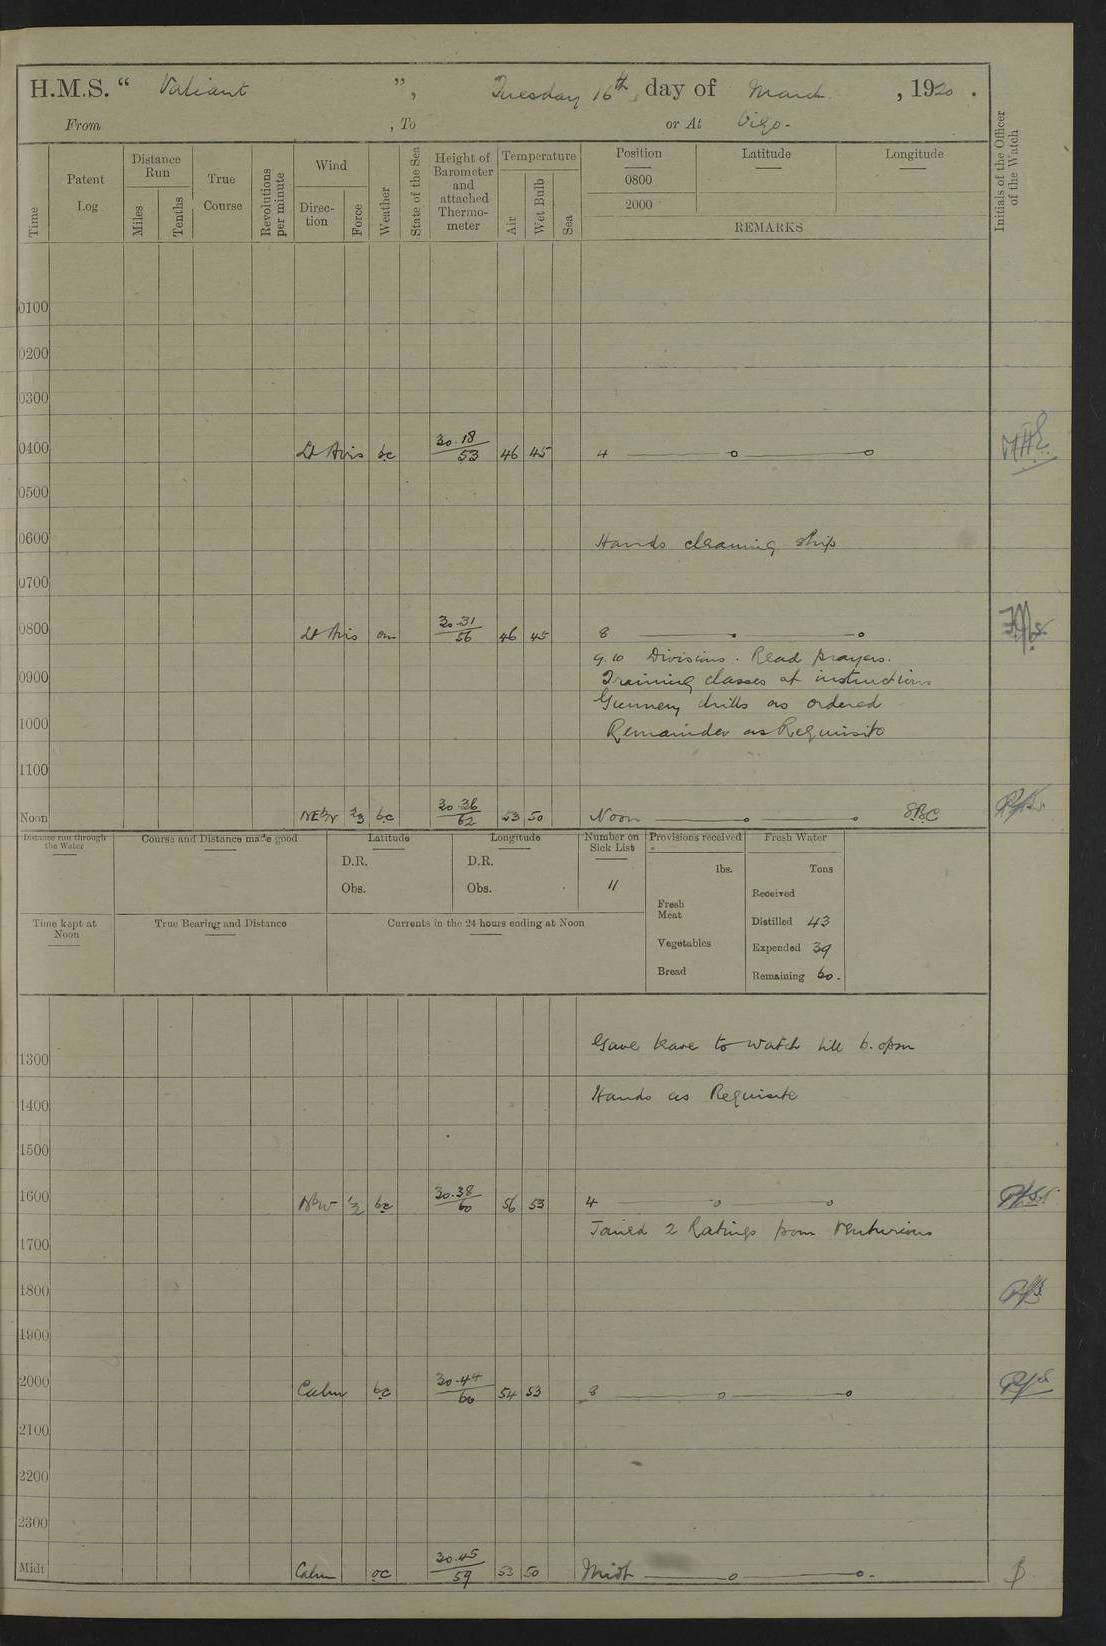 H.M.S. “ Valiant ”, Tuesday 16th, day of March, 1920.
From , To or At Vigo.
Time
Patent Log
Distance Run
Miles
Tenths
True Course
Revolutions per minute
Wind
Direction
Force
Weather
State of the Sea
Height of Barometer and attached Thermometer
Temperature
Air
Wet Bulb
Sea
Position
0800
2000
Latitude
Longitude
REMARKS
Initials of the Officer of the Watch
0100
0200
0300
0400 Lt Airs bc 30.18/53 46 45 4
0500
0600 Hands cleaning ship
0700
0800 Lt Airs om 30.31/56 46 45 8
9.10 Divisions. Read prayers.
0900 Training classes at instructions
Gunnery drills as ordered
1000 Remainder as Requisite
1100
Noon NE'N 2/3 bc 30.36/62 53 50 Noon
Distance run through the Water
Course and Distance made good
Latitude
D.R.
Obs.
Longitude
D.R.
Obs.
Number on Sick List
11
Provisions received
lbs.
Fresh Meat
Vegetables
Bread
Fresh Water
Tons
Received
Distilled 43
Expended 39
Remaining 60.
Time kept at Noon
True Bearing and Distance
Currents in the 24 hours ending at Noon
Gave leave to watch till 6.0pm
1300
1400 Hands as Requisite
1500
1600 NbW 1/2 bc 30.38/60 56 53 4
Joined 2 Ratings from Venturious
1700
1800
1900
2000 Calm bc 30.44/60 54 53 8
2100
2200
2300
Midt Calm oc 30.45/59 53 50 Midt